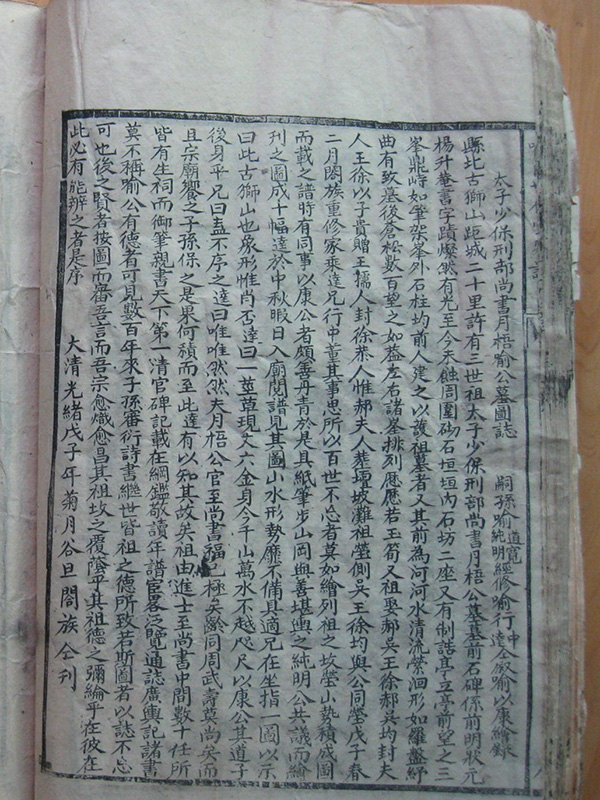 太子少保刑部尚書月梧喻公墓圖誌
嗣孫喻道寬純明經修喻行中達仝叙喻以康繪錄
縣北古獅山距城二十里許有三世祖太子少保刑部尚書月梧公墓墓前石碑係前明狀元
楊升菴書字蹟燦然有光至今天蝕周圍砌石垣垣內石坊二座又有制誥亭立亭前望之三
峯鼎峙如筆架峯外石柱均前人建之以護祖墓者又其前為河河水清流縈洄形如羅盤紆
曲有致墓後蒼松數百望之如蓋左右諸峯排列歷歷若玉筍又祖娶郝吳王徐郝吳均封夫
人王徐以子貴贈王孺人封徐恭人惟郝夫人葬壇坡灘祖塋側吳王徐均與公同塋戊子春
二月闔族重修家乘達兄行中董其事思所以百世不忘者莫如繪列祖之坟塋山勢積成圖
而載之譜時有同事以康公者頗善丹青於是具紙筆步山岡與善堪輿之純明公共議而繪
列之圖成十幅達於中秋暇日入廟閱譜見其圖山水形勢靡不備具適兄在坐指一圖以示
曰此古獅山也象形惟肖否達曰一莖草現丈六金身今千山萬水不越咫尺以康公其道子
後身乎兄曰盍不序之達曰唯唯然然夫月梧公官至尚書福已極矣齡同周武壽莫尚矣而
且宗廟饗之子孫保之是果何積而至此達有以知其故矣祖由進士至尚書中間數十任所
皆有生祠而御筆親書天下第一清官碑記載在綱鑑敬讀年譜宦畧泛覽通誌廣輿記諸書
莫不稱喻公有德者可見數百年來子孫審衍詩書繼世皆祖之德所致若斯圖者以誌不忘
可也後之賢者按圖而審吾言而吾宗愈熾愈昌其祖坟之覆蔭乎其祖德之彌綸乎在彼在
此必有能辨之者是序
大清光緒戊子年菊月谷旦閤族仝刊